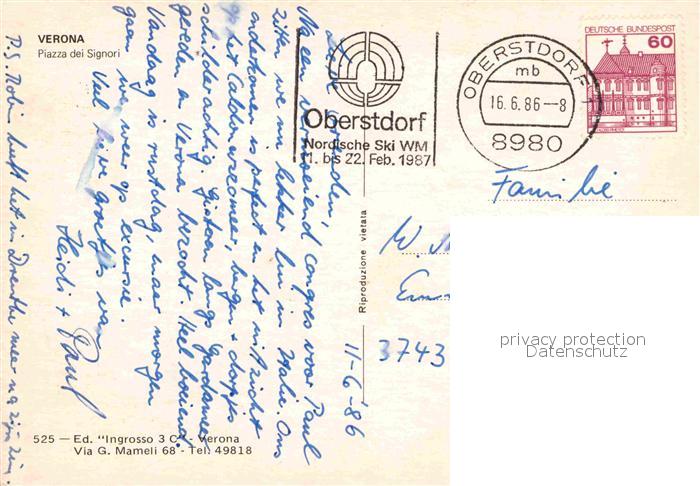 VERONA
Piazza dei Signori
Lieve vrienden,
Na een vermoeiend congres voor Paul
zitten we nu lekker in Italië. Ons
onderkomen is perfect en het uitzicht
op het Caldonazzomeer, bergen + dorpjes
schilderachtig. Gisteren langs Gardameer
gereden en Verona bezocht. Heel boeiend.
Vandaag is rustdag, maar morgen
gaan we weer op excursie.
Veel lieve groetjes van
Heidi + Paul
P.S. Robin heeft het in Drenthe meer naar zijn zin.
11-6-'86
525 — Ed. "Ingrosso 3 C" - Verona
Via G. Mameli 68 - Tel. 49818
Riproduzione vietata
Oberstdorf
Nordische Ski WM
11. bis 22. Feb. 1987
OBERSTDORF 1
mb
16.6.86-8
8980
DEUTSCHE BUNDESPOST
60
Familie
W.
3743
privacy protection
Datenschutz